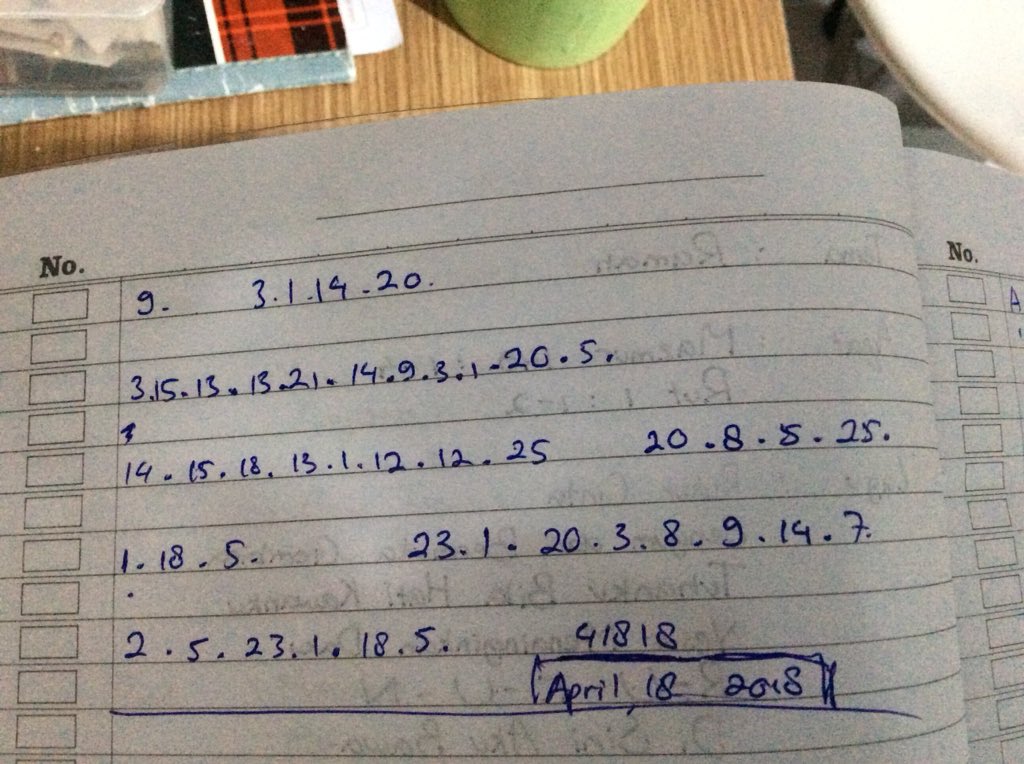 No.
No.
9. 3.1.14.20.
3.15.13.13.21.14.9.3.1.20.5.
14.15.18.13.1.12.12.25 20.8.5.25.
1.18.5. 23.1.20.3.8.9.14.7.
2.5.23.1.18.5. 41818
April, 18 2018